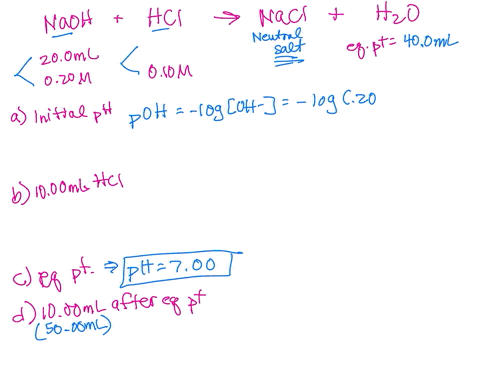 NaOH + HCl → NaCl + H2O
Neutral salt
eq. pt = 40.0mL
20.0mL
0.20M
0.10M
a) Initial pH pOH = -log[OH-] = -log(.20
b) 10.00mL HCl
c) eq pt. ⇒ pH = 7.00
d) 10.00mL after eq pt
(50.00mL)